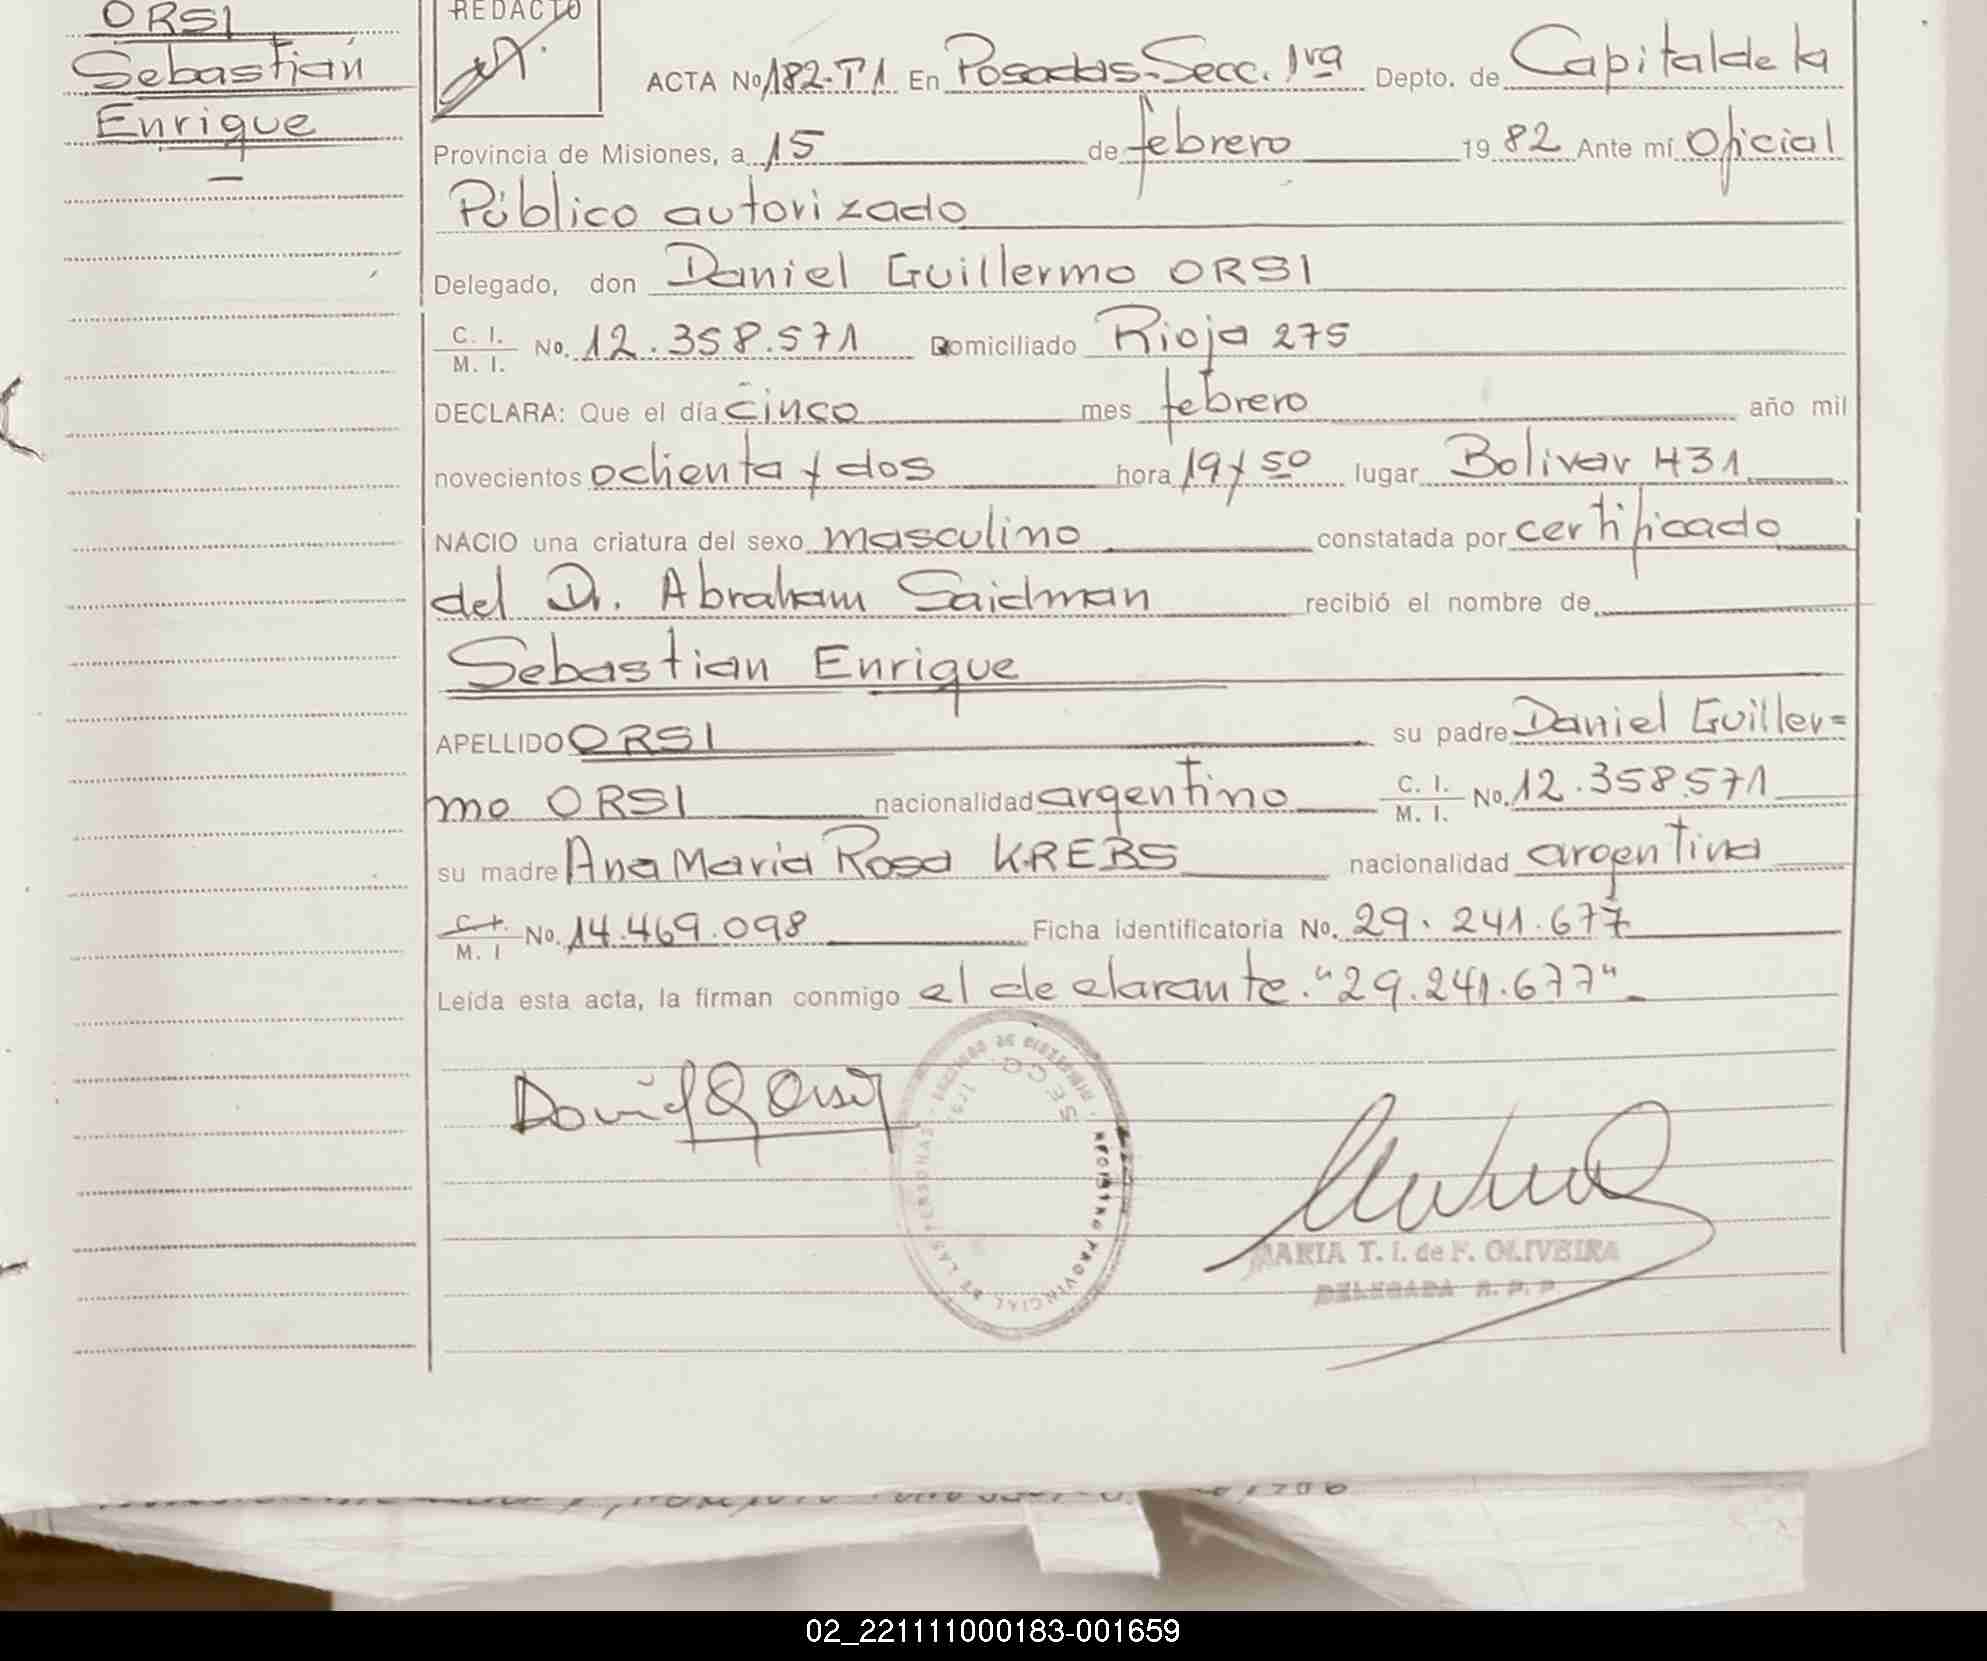 ORSI
Sebastián
Enrique
REDACTO
ACTA No 182-T1 En Posadas-Secc. 1ra Depto. de Capital de la
Provincia de Misiones, a 15 de febrero 19 82 Ante mí Oficial
Público autorizado
Delegado, don Daniel Guillermo ORSI
C. I.
M. I.
No. 12.358.571 Domiciliado Rioja 275
DECLARA: Que el día cinco mes febrero año mil
novecientos ochenta y dos hora 19 y 50 lugar Bolivar 431
NACIO una criatura del sexo masculino constatada por certificado
del Dr. Abraham Saidman recibió el nombre de
Sebastian Enrique
APELLIDO ORSI su padre Daniel Guiller=
mo ORSI nacionalidad argentino C. I. M. I. No. 12.358.571
su madre Ana Maria Rosa KREBS nacionalidad argentina
C. I. M. I No. 14.469.098 Ficha identificatoria No. 29.241.677
Leída esta acta, la firman conmigo el declarante. "29.241.677"
Daniel G Orsi
SECC. 1ra
REGISTRO PROVINCIAL DE LAS PERSONAS
MARIA T. I. de F. OLIVEIRA
DELEGADA R. P. P.
02_221111000183-001659